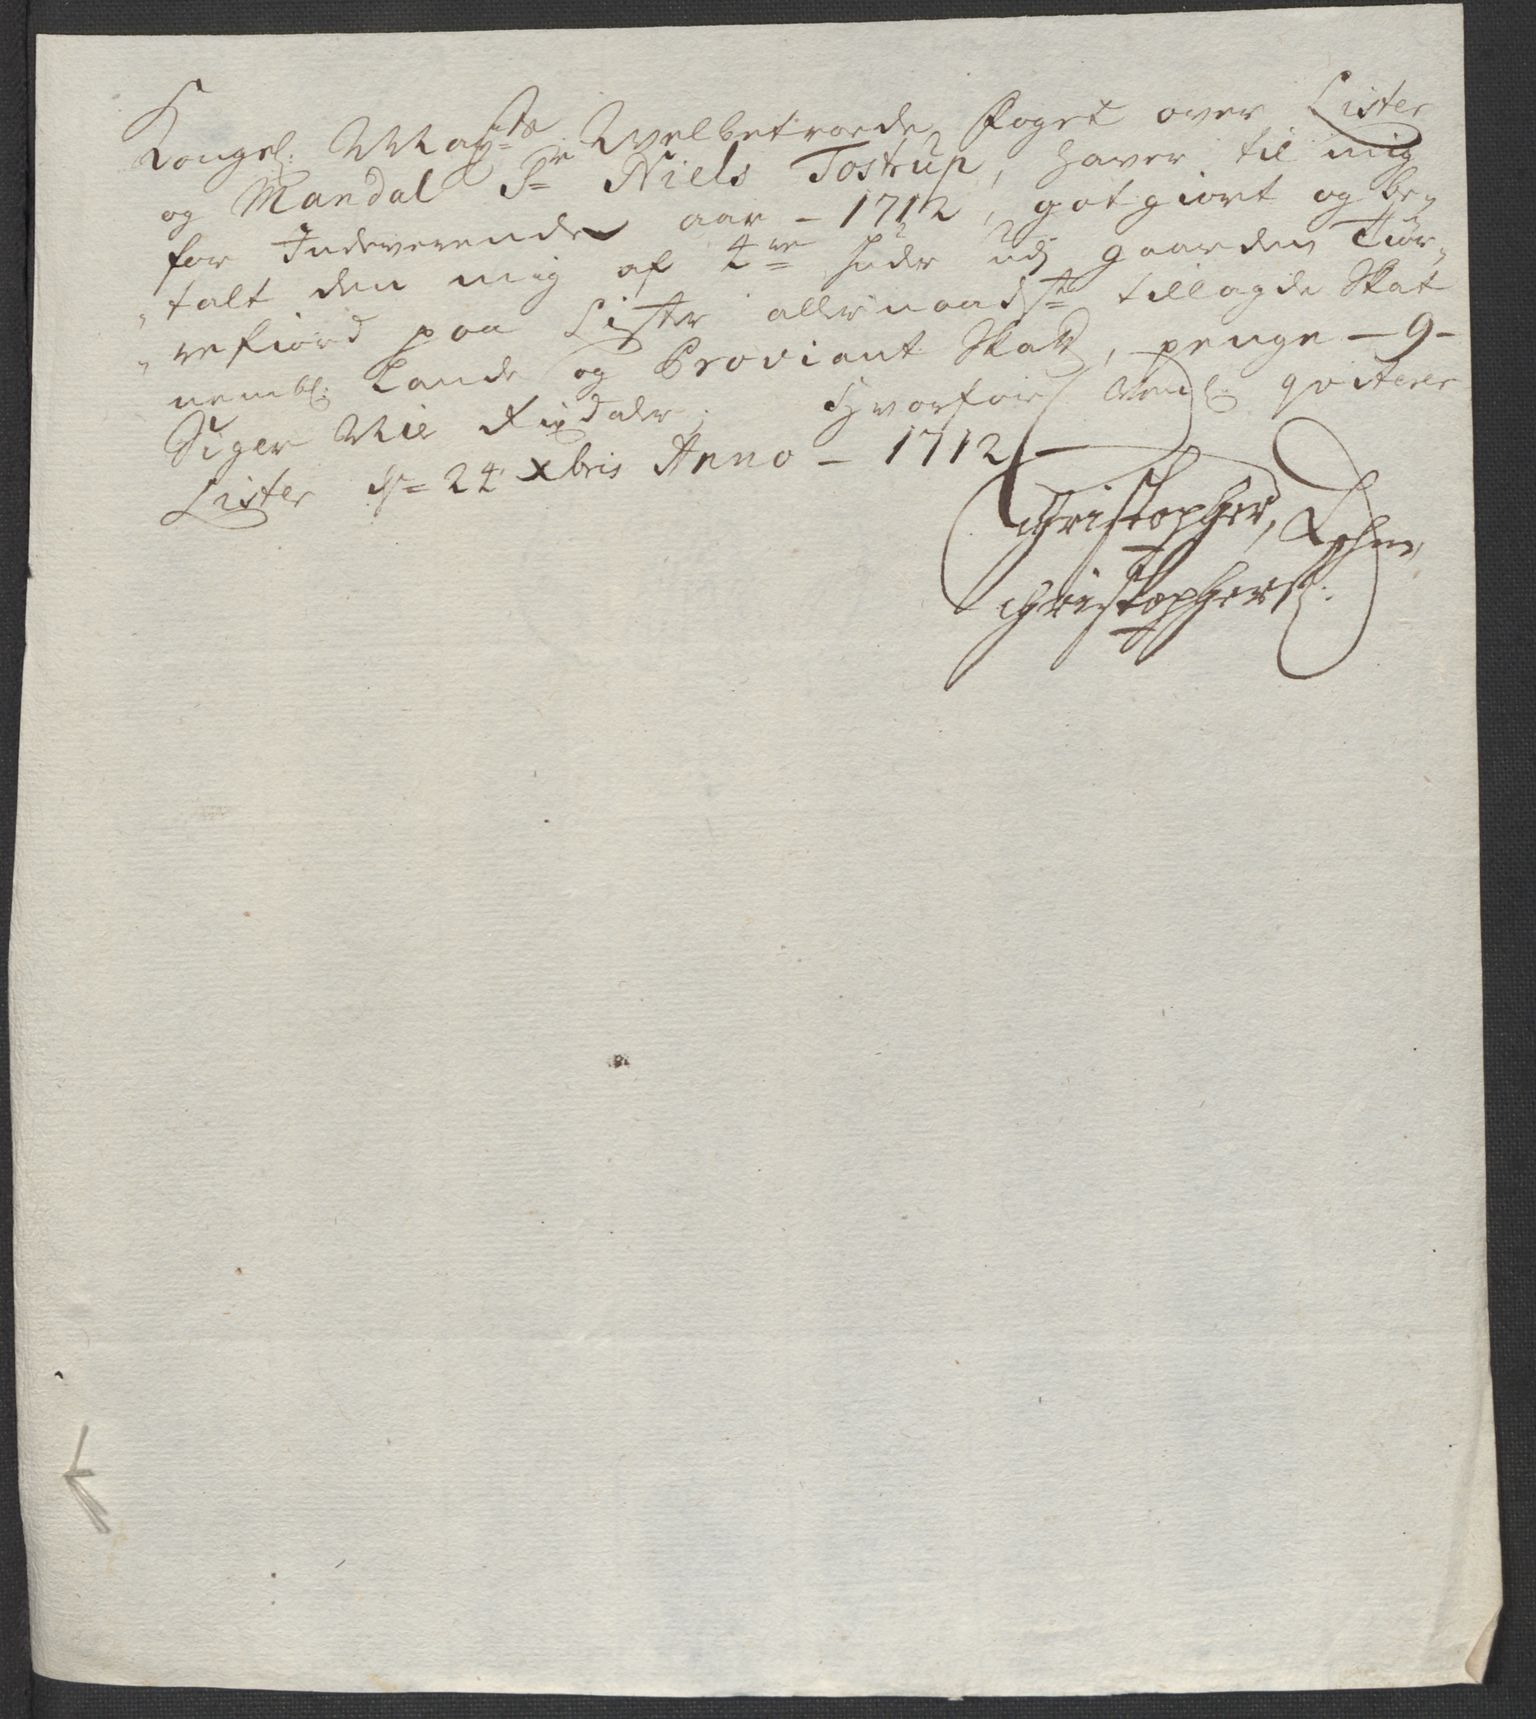 Kongel: Mayts Welbetroede Foget over Lister
og Mandal Sr Niels Tostrup, haver til mig
for Indeverende aar – 1712, godtgiort og be-
talt den mig af 4re huder udj gaarden Tiør-
refiord paa Lister allernaadste tillagde Skat
nembl: Lands og Proviant Skatt, penge – 9 –
Siger Nie Rixdaler, Hvorfore Venl: qviterer
Lister dn 24 Xbris Anno – 1712 –
Christopher, Lehm,
Christophers: